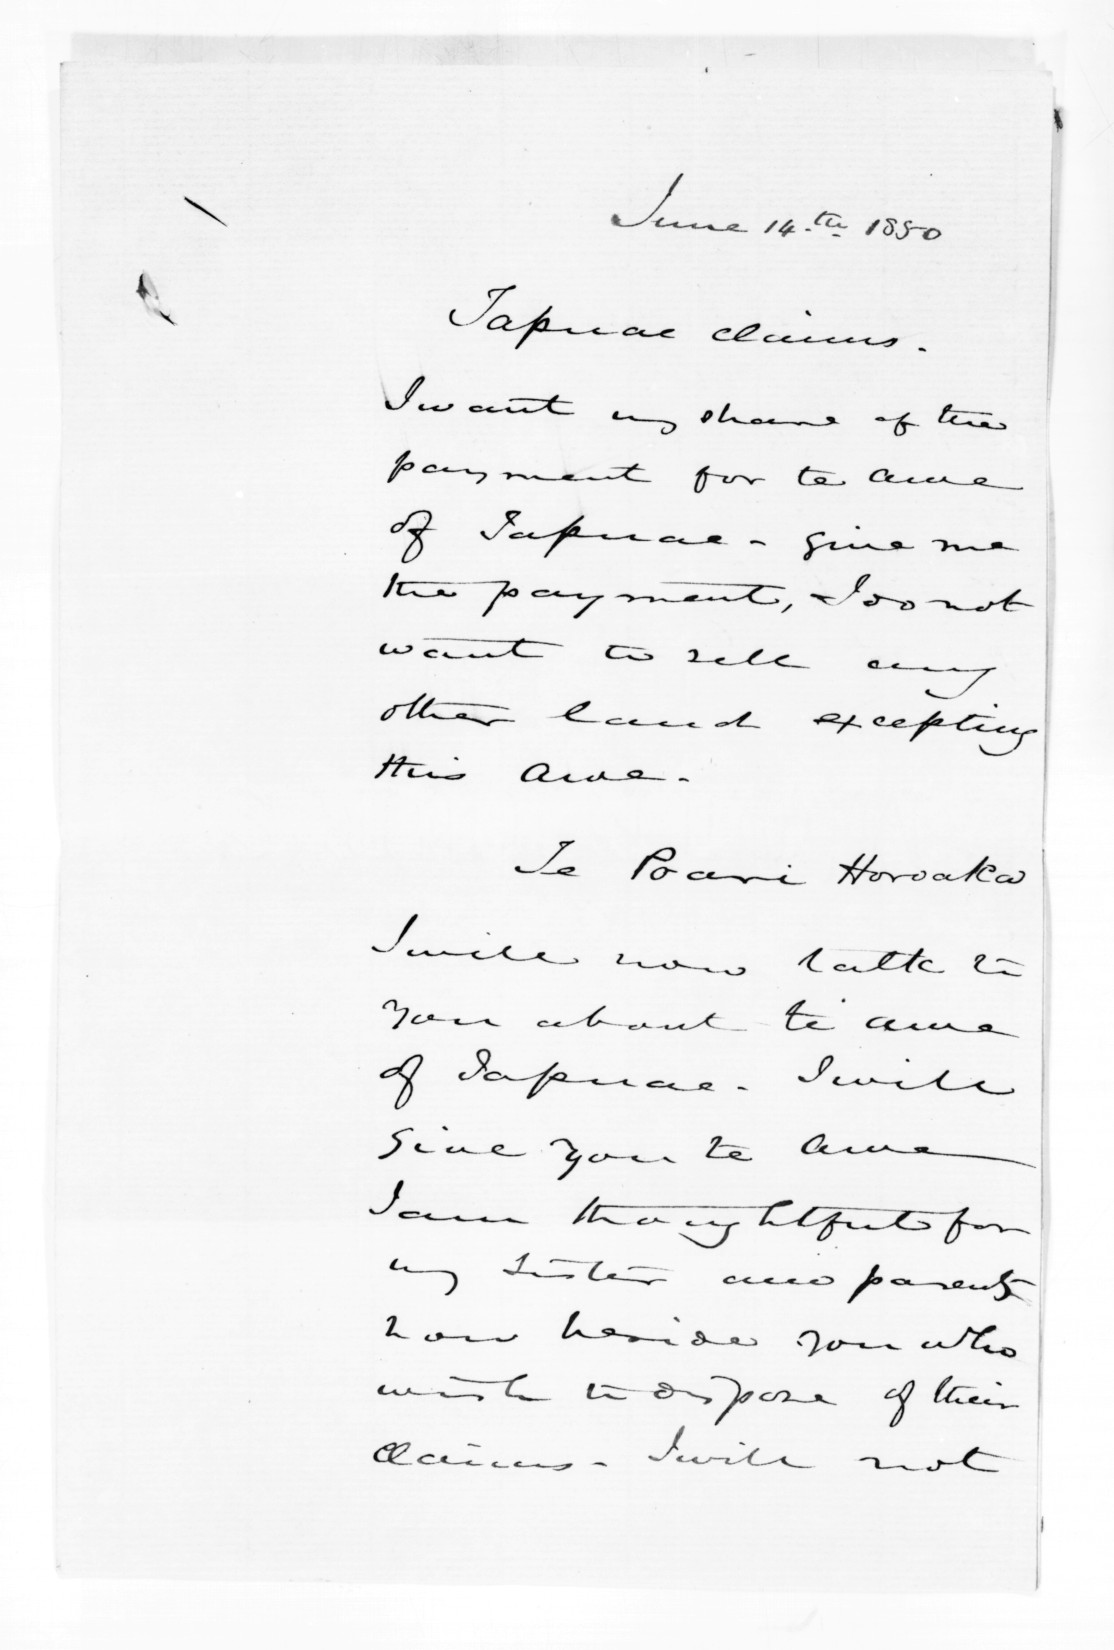 June 14.th 1850
Tapuae claims.
I want my share of the
payment for te awe
of Tapuae - give me
the payment, I do not
want to sell any
other land excepting
this Awe -
Te Poari Horoaka
I will now talk to
you about te awe
of Tapuae - I will
give you te Awe
I am thoughtful for
my sister and parents
now beside you who
wish to dispose of their
claims - I will not